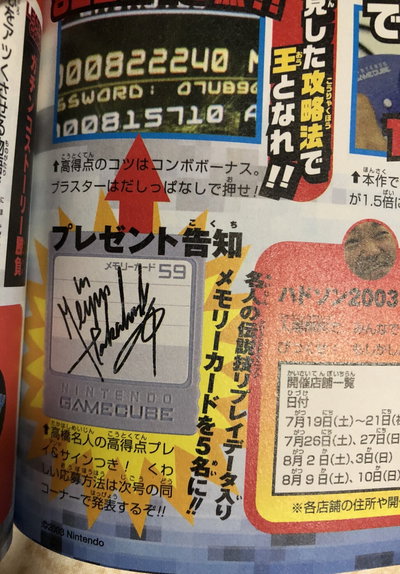 000822240
PASSWORD:
000815710 A
見した攻略法で
王となれ!!
で
⬆高得点のコツはコンボボーナス。
ブラスターはだしっぱなしで押せ!
⬆本作で
が1.5倍に
プレゼント告知
メモリーカード 59
Meijin
NINTENDO
GAMECUBE
名人の伝説技リプレイデータ入り
メモリーカードを5名に!!
⬆高橋名人の高得点プレ
イ&サインつき! くわ
しい応募方法は次号の同
コーナーで発表するぞ!!
©2003 Nintendo
ハドソン2003
開催店舗一覧
日付
7月19日(土)〜21日(祝
7月26日(土)、27日(日
8月2日(土)、3日(日)
8月9日(土)、10日(日
※各店舗の住所や開